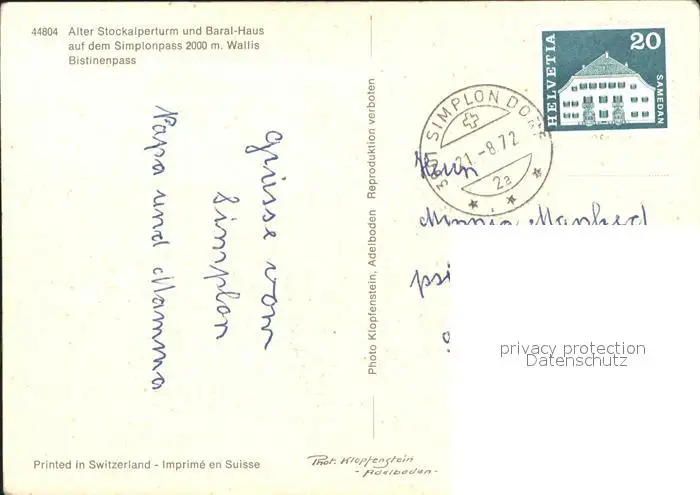 44804 Alter Stockalperturm und Baral-Haus
auf dem Simplonpass 2000 m. Wallis
Bistinenpass
Grüsse vom
Simplon
Papa und Mamma
Printed in Switzerland - Imprimé en Suisse
Photo Klopfenstein, Adelboden Reproduktion verboten
Phot. Klopfenstein
- Adelboden -
HELVETIA
20
SAMEDAN
SIMPLON DORF
21.-8.72
2a
Manfred
privacy protection
Datenschutz